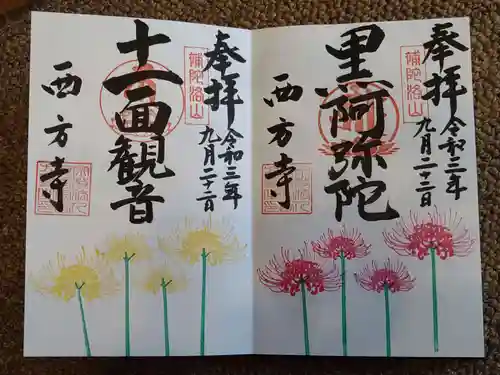 奉拝
補陀洛山
令和三年
九月二十二日
黒阿弥陀
西方寺
奉拝
補陀洛山
令和三年
九月二十二日
十一面観音
西方寺